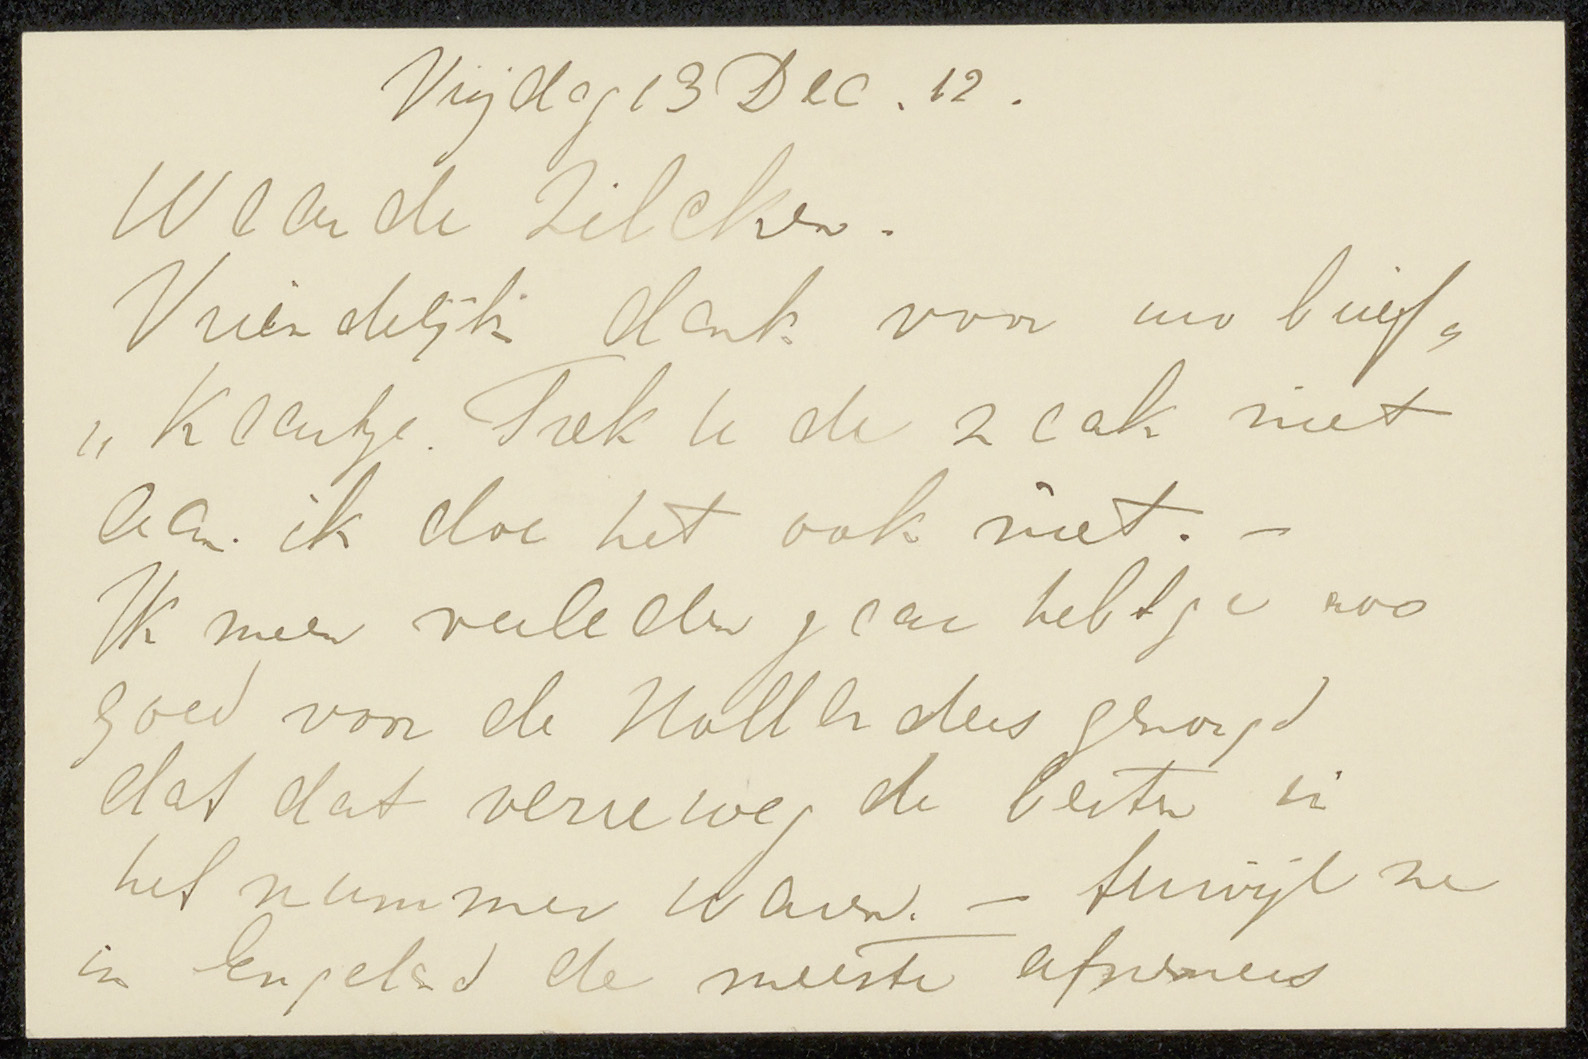 Vrijdag 13 Dec. 12.
Waarde Zilcken.
Vriendelijk dank voor uw brief„
„kaartje. Trek u de zaak niet
aan. ik doe het ook niet. —
Ik meen verleden jaar hebt ge zoo
goed voor de Hollanders gezorgd
dat dat verreweg de besten in
het nummer waren. — terwijl ze
in Engeland de meeste afnemers